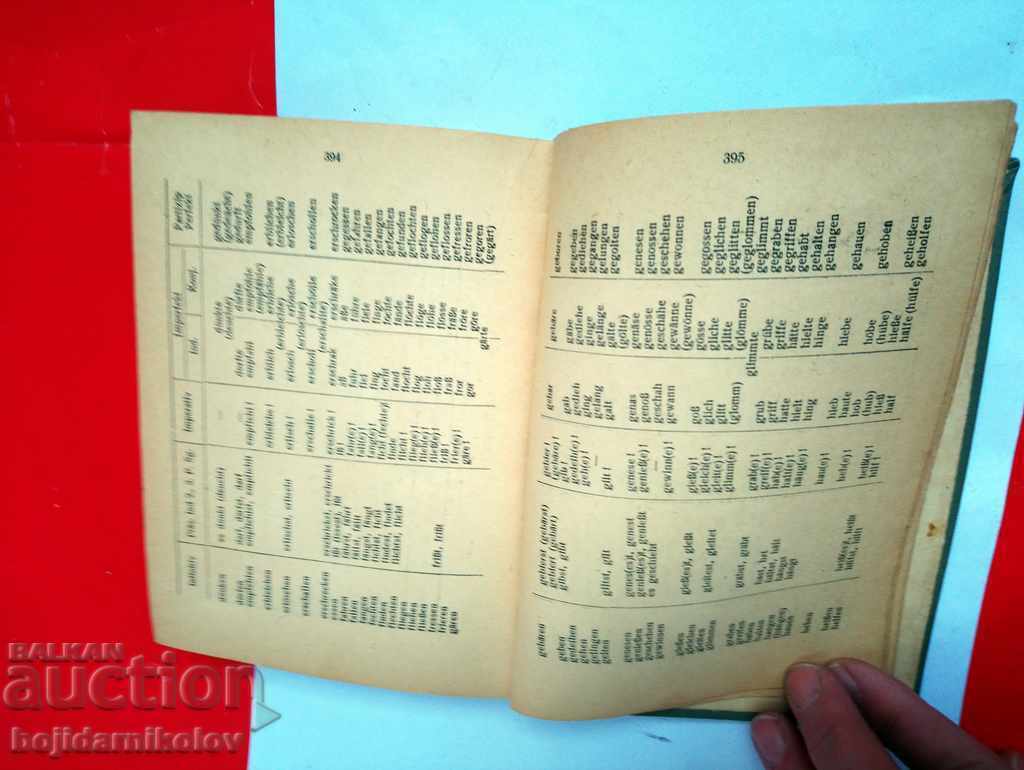 394
Imperativ
Imperfekt
Partizip Perfekt
Ind. Konj.
dünken es dünkt (deucht) — dünkte (deuchte) gedünkt (gedeucht)
dürfen darf, darfst, darf — durfte dürfte gedurft
empfehlen empfiehlst, empfiehlt empfiehl! empfahl empföhle (empfähle) empfohlen
erbleichen erbleiche! erblich erbliche (erbleichte) erblichen (erbleicht)
erlöschen erlischst, erlischt erlisch! erlosch erlösche erloschen
erschallen erschalle! erscholl erschölle (erschallte) erschollen
erschrecken erschrickst, erschrickt erschrick! erschrak erschräke erschrocken
essen ißt iß! aß äße gegessen
fahren fährst, fährt fahr(e)! fuhr führe gefahren
fallen fällst, fällt fall(e)! fiel fiele gefallen
fangen fängst, fängt fang(e)! fing finge gefangen
fechten fichtst, ficht ficht (fechte)! focht föchte gefochten
finden findest, findet finde! fand fände gefunden
flechten flichtst, flicht flicht! flocht flöchte geflochten
fliegen fliege(e)! flog flöge geflogen
fliehen flieh(e)! floh flöhe geflohen
fließen fließ(e)! floß flösse geflossen
fressen frißt, frißt friß! fraß fräße gefressen
frieren frier(e)! fror fröre gefroren
gären gäre! gor göre gärte gegoren (gegärt)
395
gebären gebierst (gebärst) gebiert (gebärt) gebier! (gebäre)! gebar gebäre geboren
geben gibst, gibt gib! gab gäbe gegeben
gedeihen gedeih(e)! gedieh gediehe gediehen
gehen geh(e)! ging ginge gegangen
gelingen — gelang gelänge gelungen
gelten giltst, gilt gilt! galt gälte (gölte) gegolten
genesen genes(es)t, genest genese! genas genäse genesen
genießen genieß(es)t, genießt genieß(e)! genoß genösse genossen
geschehen es geschieht — geschah geschähe geschehen
gewinnen gewinn(e)! gewann gewänne (gewönne) gewonnen
gießen gieß(es)t, gießt gieß(e)! goß gösse gegossen
gleichen gleich(e)! glich gliche geglichen
gleiten gleitest, gleitet gleit(e)! glitt glitte geglitten
glimmen glimm(e)! (glomm) (glömme) glimmte (geglommen) geglimmt
graben gräbst, gräbt grab(e)! grub grübe gegraben
greifen greif(e)! griff griffe gegriffen
haben hast, hat hab(e)! hatte hätte gehabt
halten hältst, hält halt(e)! hielt hielte gehalten
hangen hängst hängt hang(e)! hing hinge gehangen
hau(e)! hieb haute hiebe gehauen
heben heb(e)! hob (hub) höbe (hübe) gehoben
heißen heiß(es)t, heißt heiß(e)! hieß hieße geheißen
helfen hilfst, hilft hilf! half hälfe (hülfe) geholfen
BALKAN
auction
bojidarnikolov